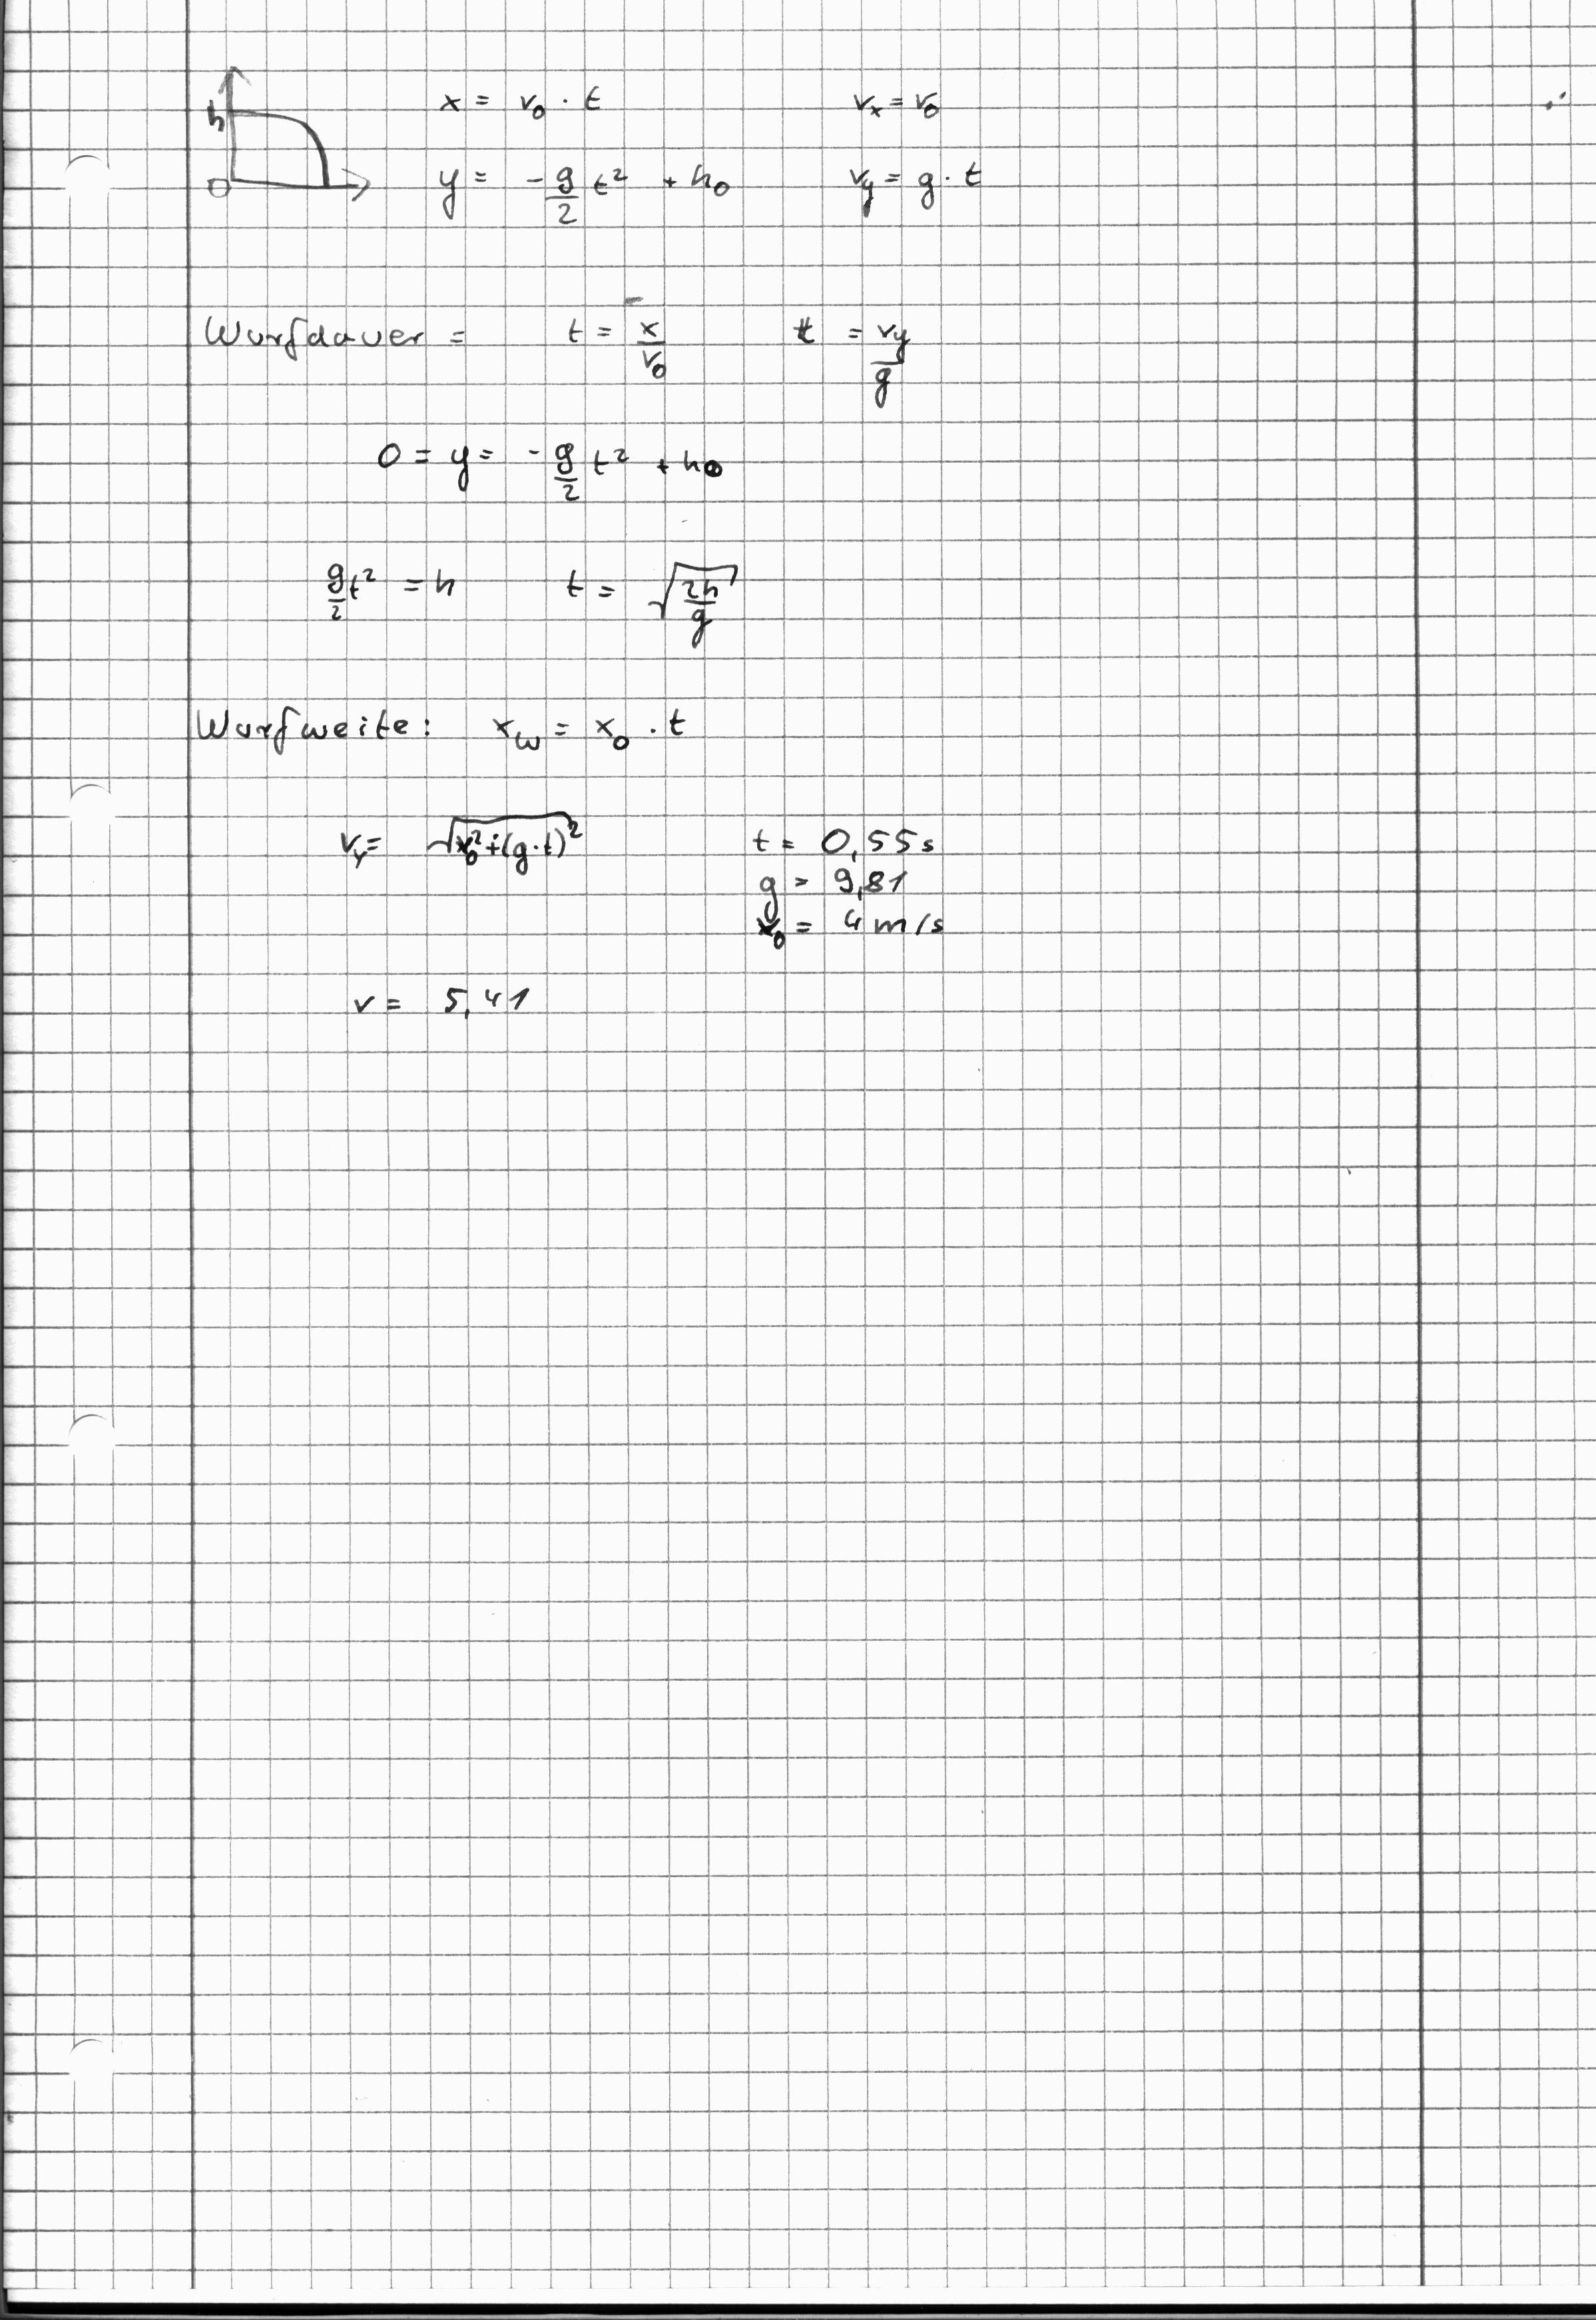 h x = v₀ · t vₓ = v₀
0 y = - g/2 t² + h₀ v_y = g · t
Wurfdauer = t = x/v₀ t = v_y/g
0 = y = - g/2 t² + h₀
g/2 t² = h t = √(2h/g)
Wurfweite: x_w = x₀ · t
v_y = √(x₀² + (g·t)²) t = 0,55 s
g = 9,81
x₀ = 4 m/s
v = 5,41